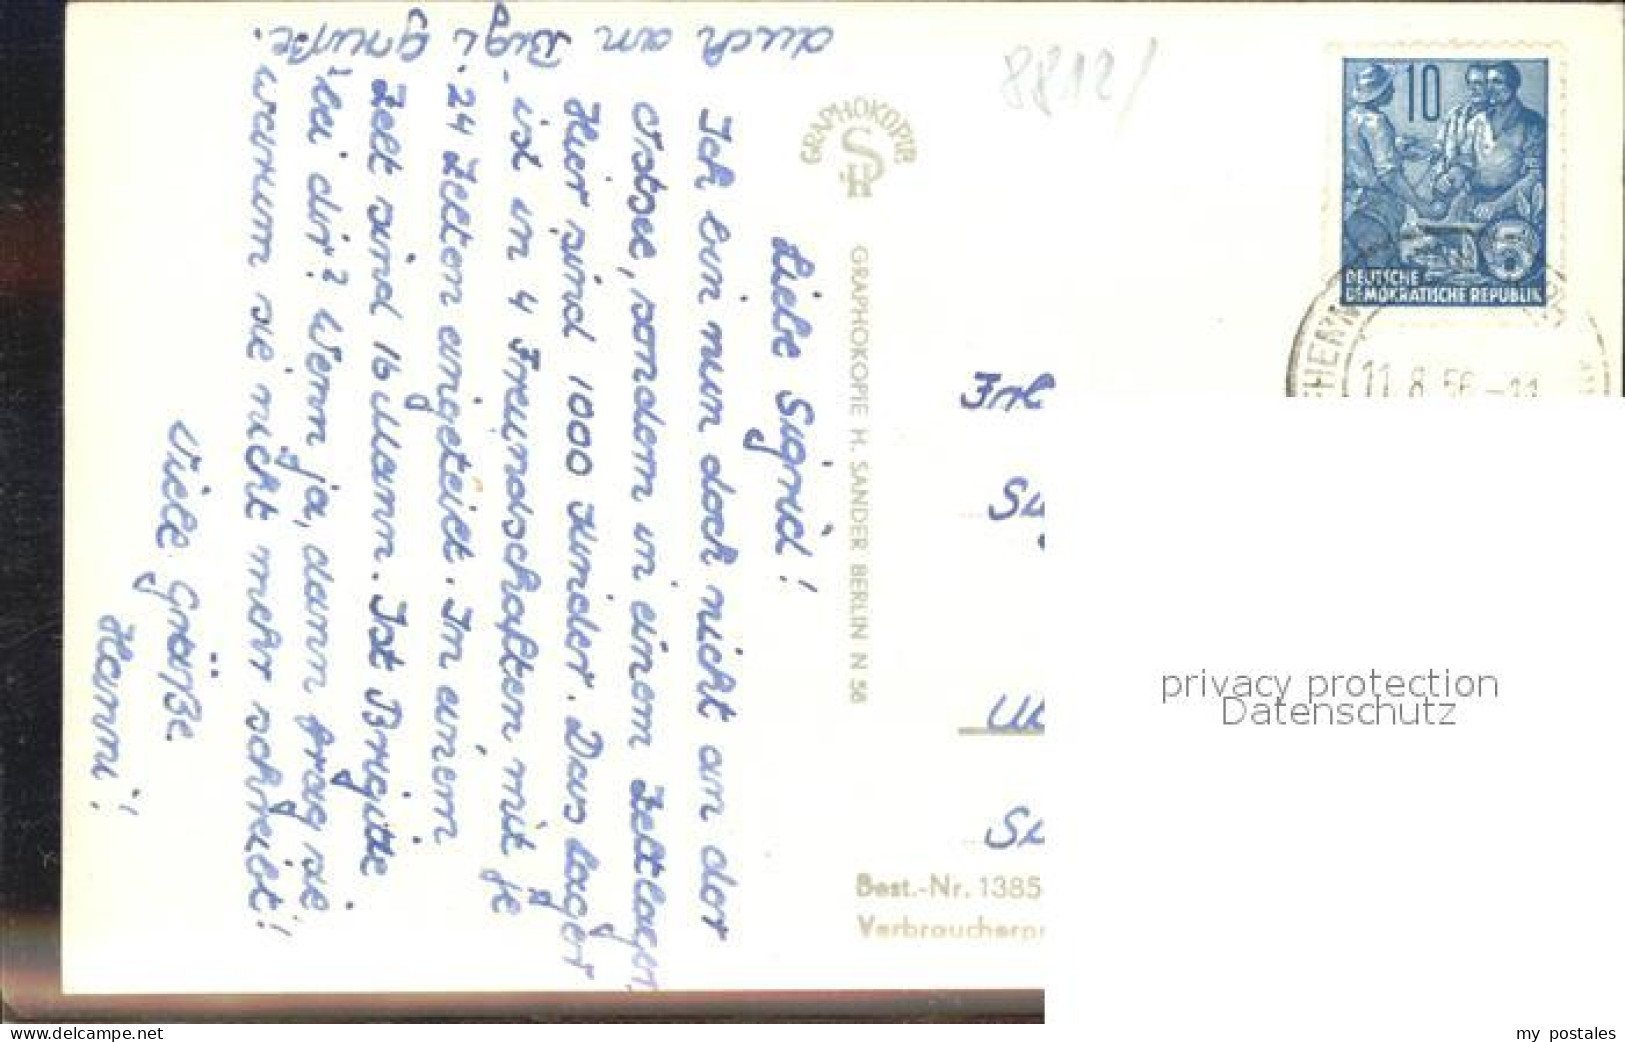 Liebe Sigrid!
Ich bin nun doch nicht an der
Ostsee, sondern in einem Zeltlager,
Hier sind 1000 Kinder. Das Lager
ist in 4 Freundschaften mit je
24 Zelten eingeteilt. In einem
Zelt sind 16 Mann. Ist Brigitte
bei dir? Wenn ja, dann frag sie
warum sie nicht mehr schreibt!
Viele Grüße
Hanni!
auch an Bigi Grüße.
8812/
GRAPHOKOPIE
HS
GRAPHOKOPIE H. SANDER BERLIN N 58
10
5
DEUTSCHE
DEMOKRATISCHE REPUBLIK
11.8.56-11
Best.-Nr. 1385
Verbraucherpr
privacy protection
Datenschutz
www.delcampe.net
my_postales